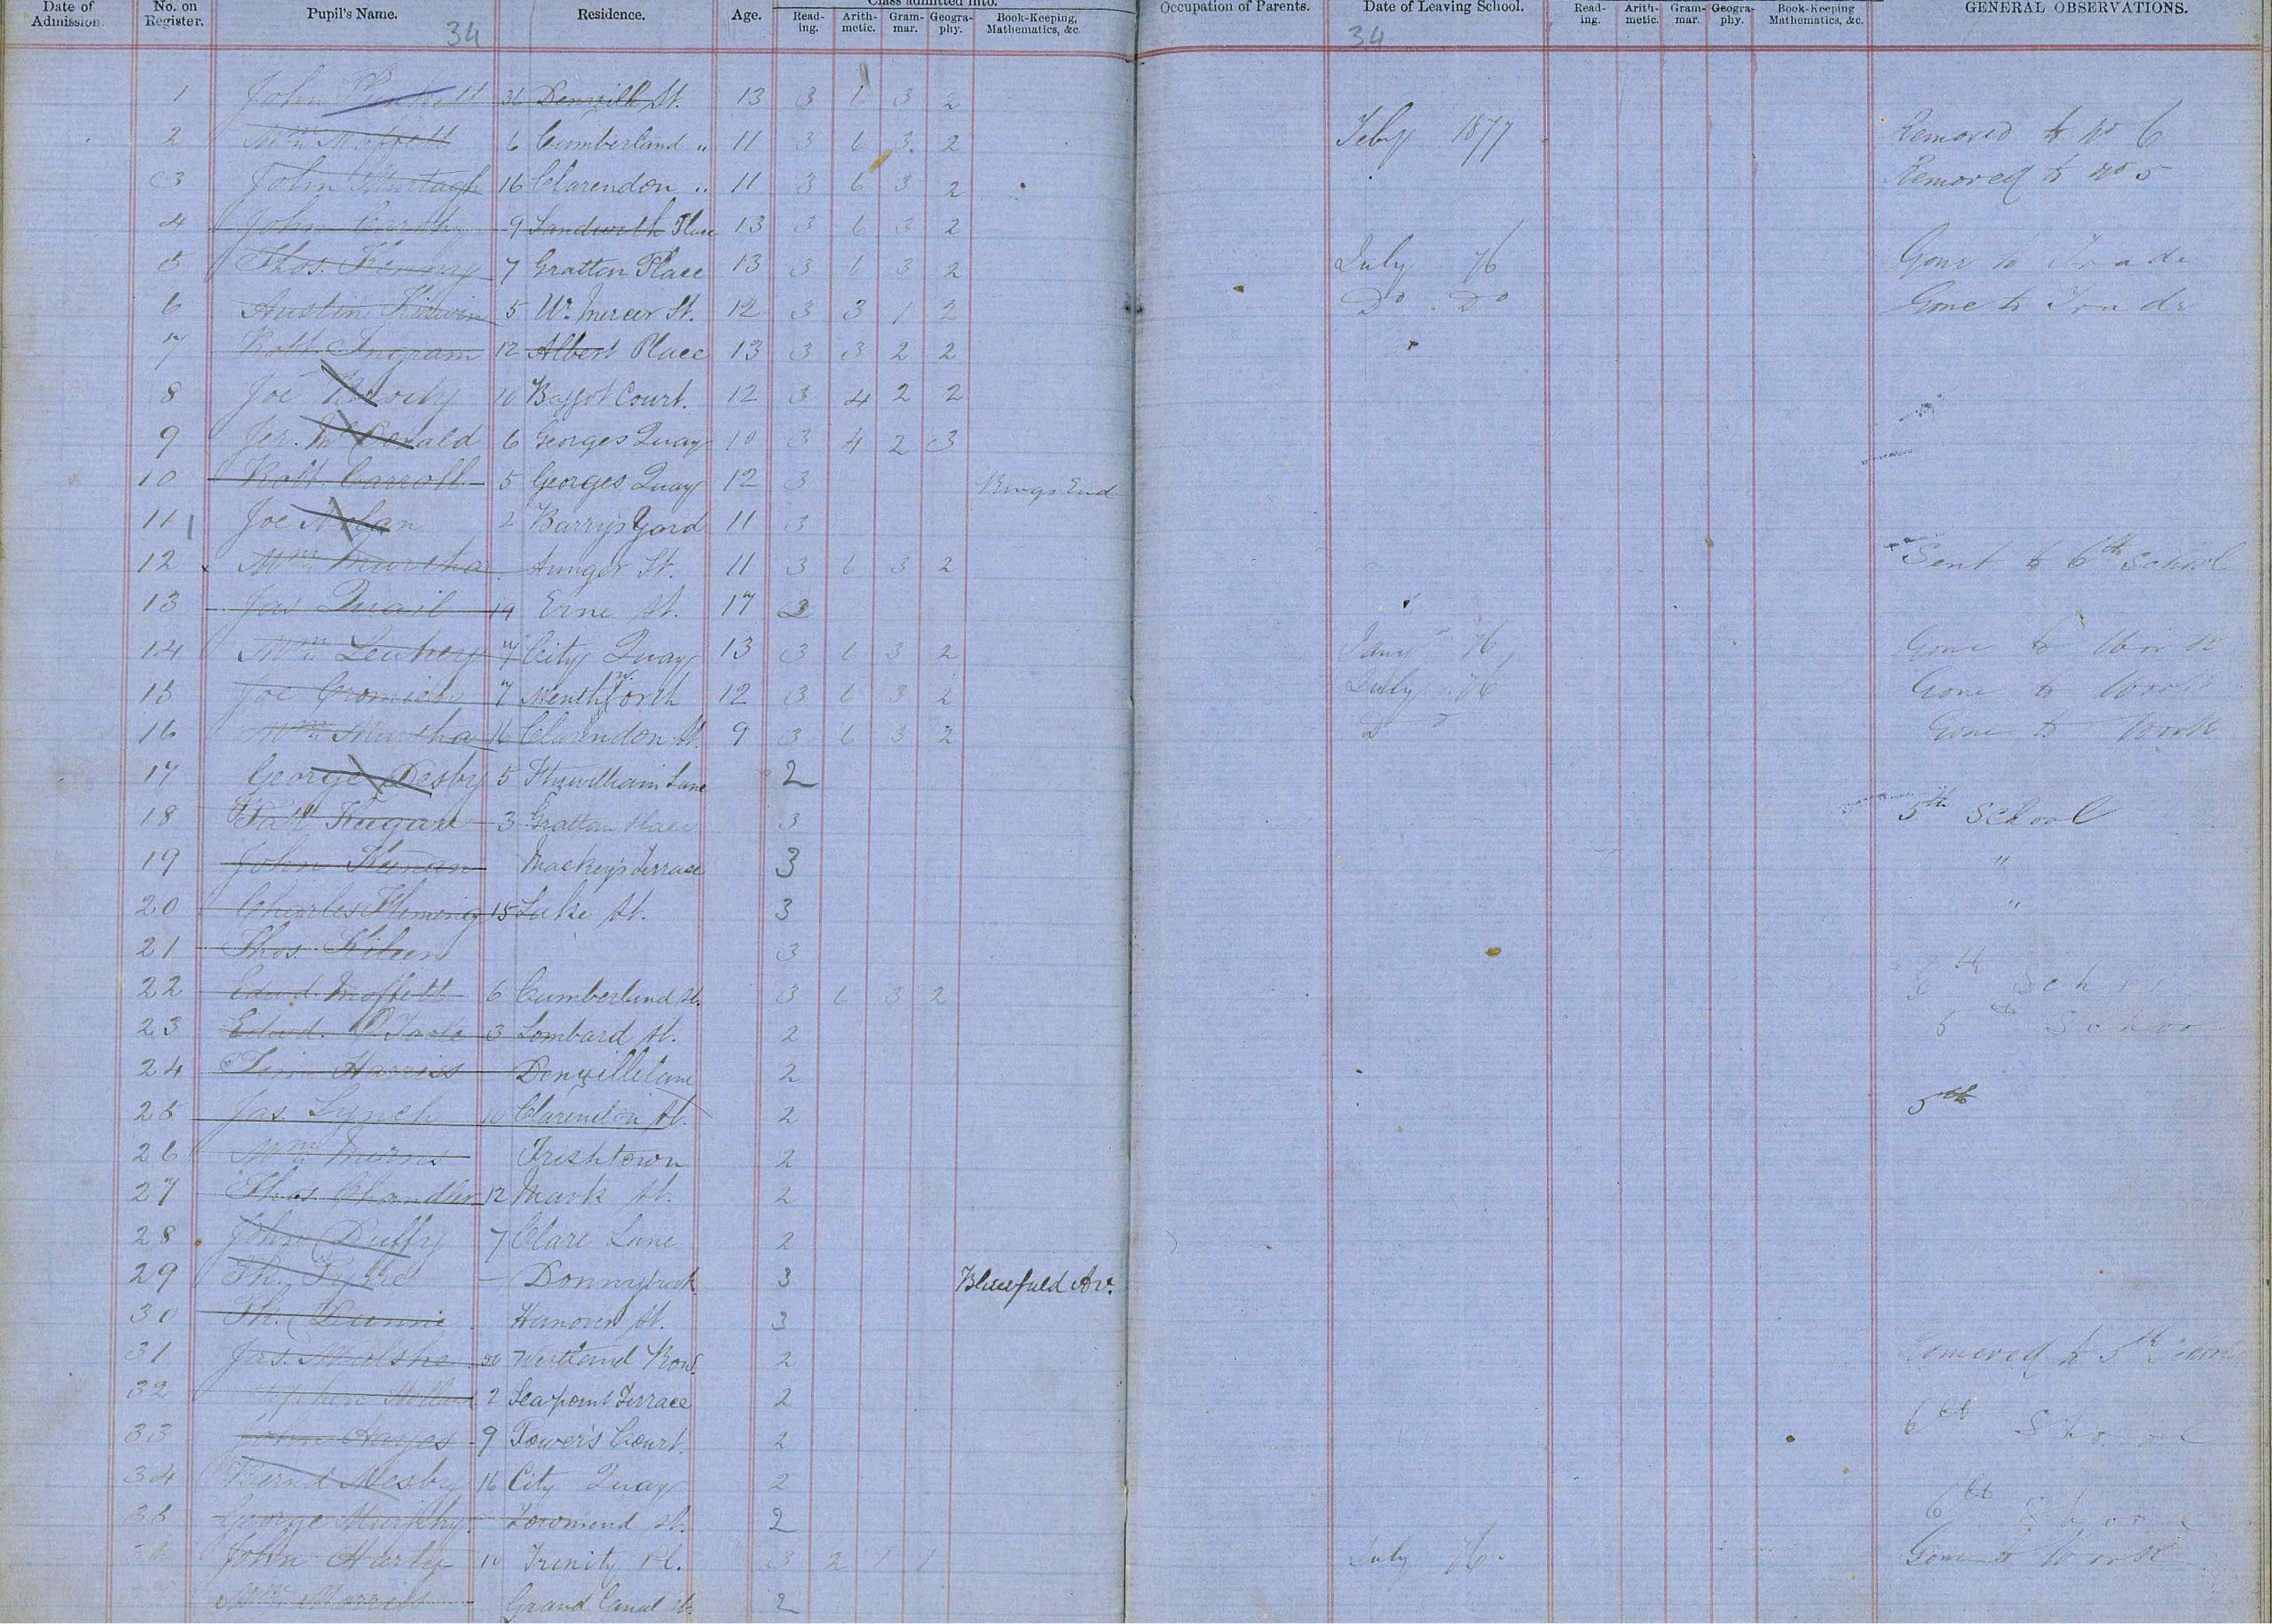 Date of Admission. No. on Register. Pupil's Name. Residence. Age. Class admitted into. Occupation of Parents. Date of Leaving School. GENERAL OBSERVATIONS.
Read-ing. Arith-metic. Gram-mar. Geogra-phy. Book-Keeping, Mathematics, &c. Read-ing. Arith-metic. Gram-mar. Geogra-phy. Book-Keeping Mathematics, &c.
34 34
1 John 36 Denzille St. 13 3 6 3 2
2 Wm Moffett 6 Cumberland " 11 3 6 3 2 Feby 1877 Removed to No 6
3 John Murtagh 16 Clarendon " 11 3 6 3 2 Removed to No 5
4 John 9 Sandwith Place 13 3 6 3 2
5 Thos. Kenny 7 Grattan Place 13 3 6 3 2 July 76 Gone to Trade
6 Austin Kirwin 5 Ur. Mercer St. 12 3 3 1 2 Do Do Gone to Trade
7 Robt. Ingram 12 Albert Place 13 3 3 2 2
8 Joe 10 Baggot Court. 12 3 4 2 2
9 Jer. McDonald 6 Georges Quay 10 3 4 2 3
10 Robt. Carroll 5 Georges Quay 12 3 Rings End
11 Joe Nolan 2 Barry's Yard 11 3
12 Wm Murtha Aungier St. 11 3 6 3 2 Sent to 6th School
13 Jas Quail 19 Erne St. 17 3
14 Wm Leahey City Quay 13 3 6 3 2 Jany 76 Gone to Work
15 Joe Cromien 7 Wentworth 12 3 6 3 2 July 76 Gone to Work
16 Wm Murtha 16 Clarendon St. 9 3 6 3 2 Do Gone to Work
17 George Desby 5 Fitzwilliam Lane 2
18 Patk Keegan 3 Grattan Place 3 5th School
19 John Keenan Mackey's Terrace 3 "
20 Charles Fleming 15 Luke St. 3 "
21 Thos. Kileen 3
22 Edwd. Moffett 6 Cumberland St. 3 6 3 2 6th School
23 Edwd. O'Toole 3 Lombard St. 2 6th School
24 Harris Denzille Lane 2
25 Jas. Lynch 10 Clarendon St. 2 5th
26 Wm Irishtown 2
27 Thos. Chandler 12 Mark St. 2
28 John Duffy 7 Clare Lane 2
29 Th. Donnybrook 3 Bloomfield Av.
30 Th. Dunne Hanover St. 3
31 Jas. Walshe Westland Row. 2 Removed to 5th School
32 Stephen 2 Seapoint Terrace 2
33 John Hayes 9 Power's Court. 2 6th School
34 Bernd Mosby 16 City Quay 2
35 George Murphy Townsend St. 2 6th School
36 John Harty 10 Trinity Pl. 3 2 1 1 July 76. Gone to Work
Wm Grand Canal St. 2